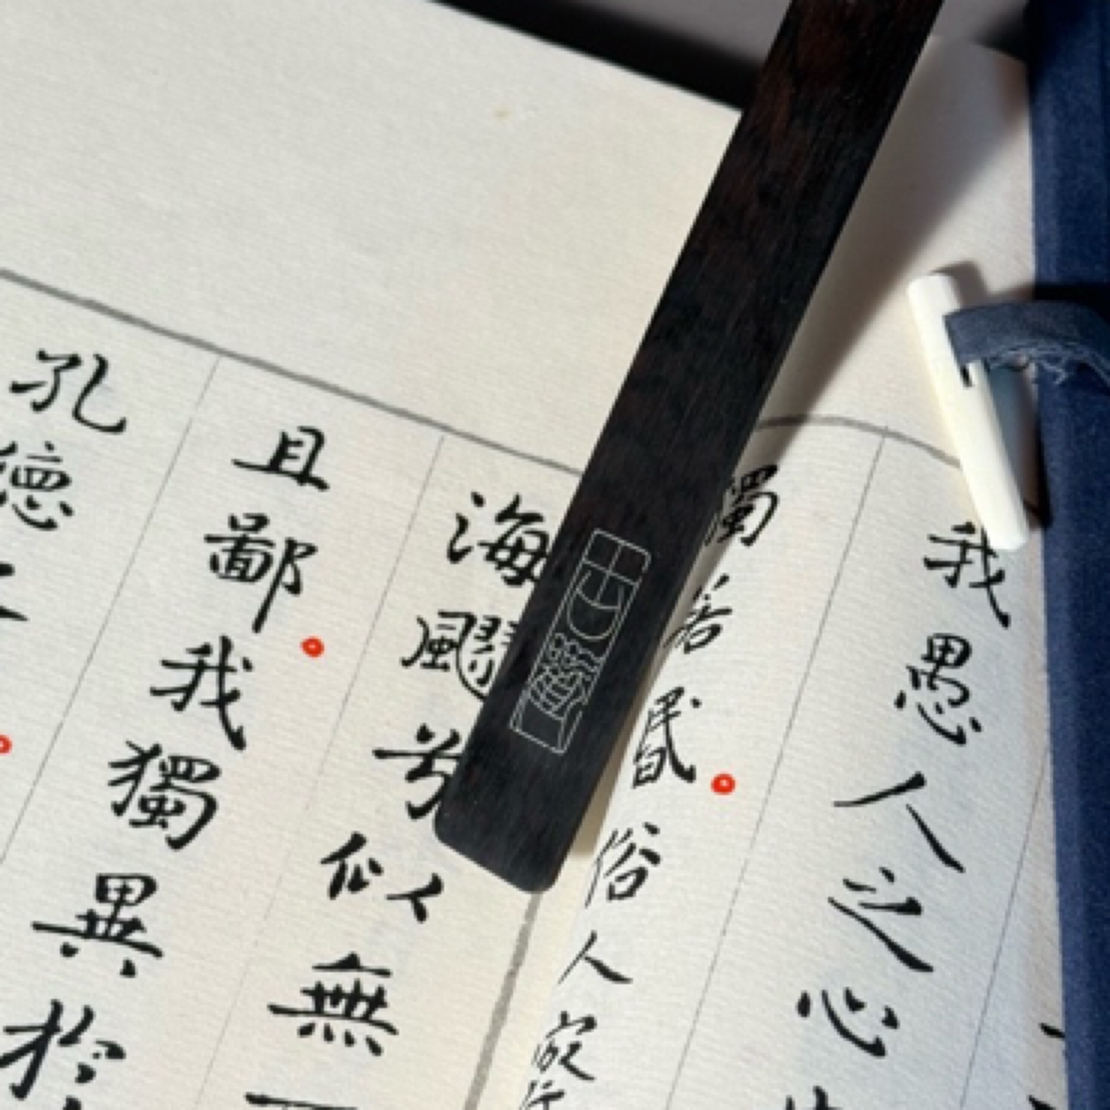 我愚人之心
獨若昬。俗人察
海飂兮似無
且鄙。我獨異於
孔德